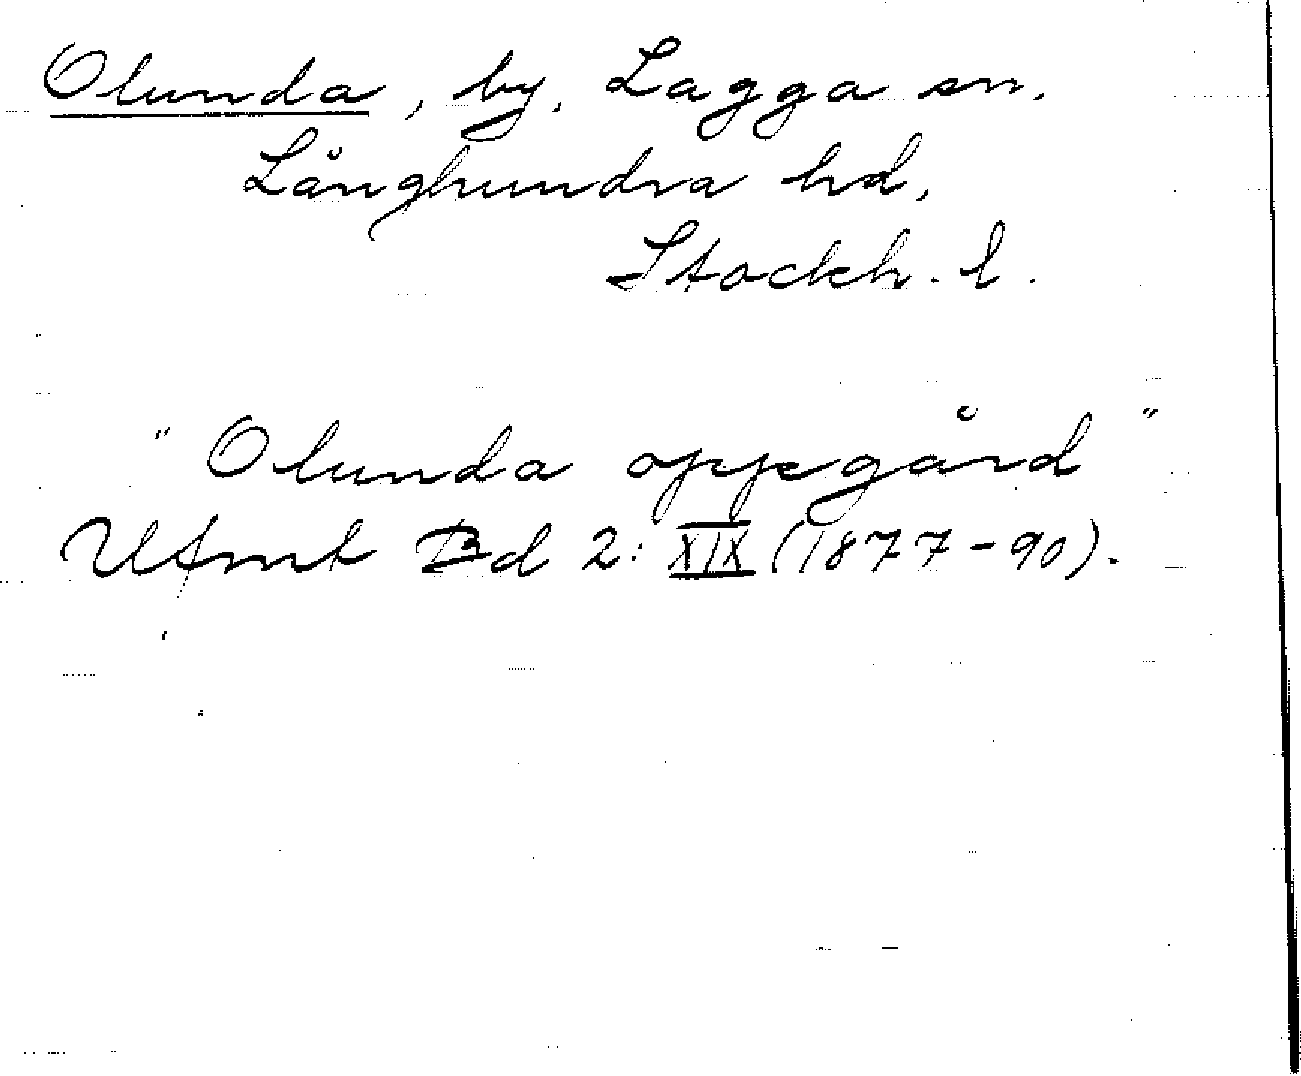 Olunda, by. Lagga sn.
Långhundra hd,
Stockh. l.
"Olunda oppegård"
Ufmt Bd 2: XIX (1877-90).